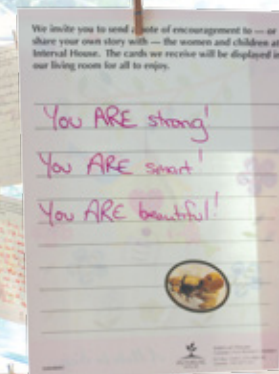 We invite you to send a note of encouragement to — or
share your own story with — the women and children at
Interval House. The cards we receive will be displayed in
our living room for all to enjoy.
You ARE strong!
You ARE smart!
You ARE beautiful!